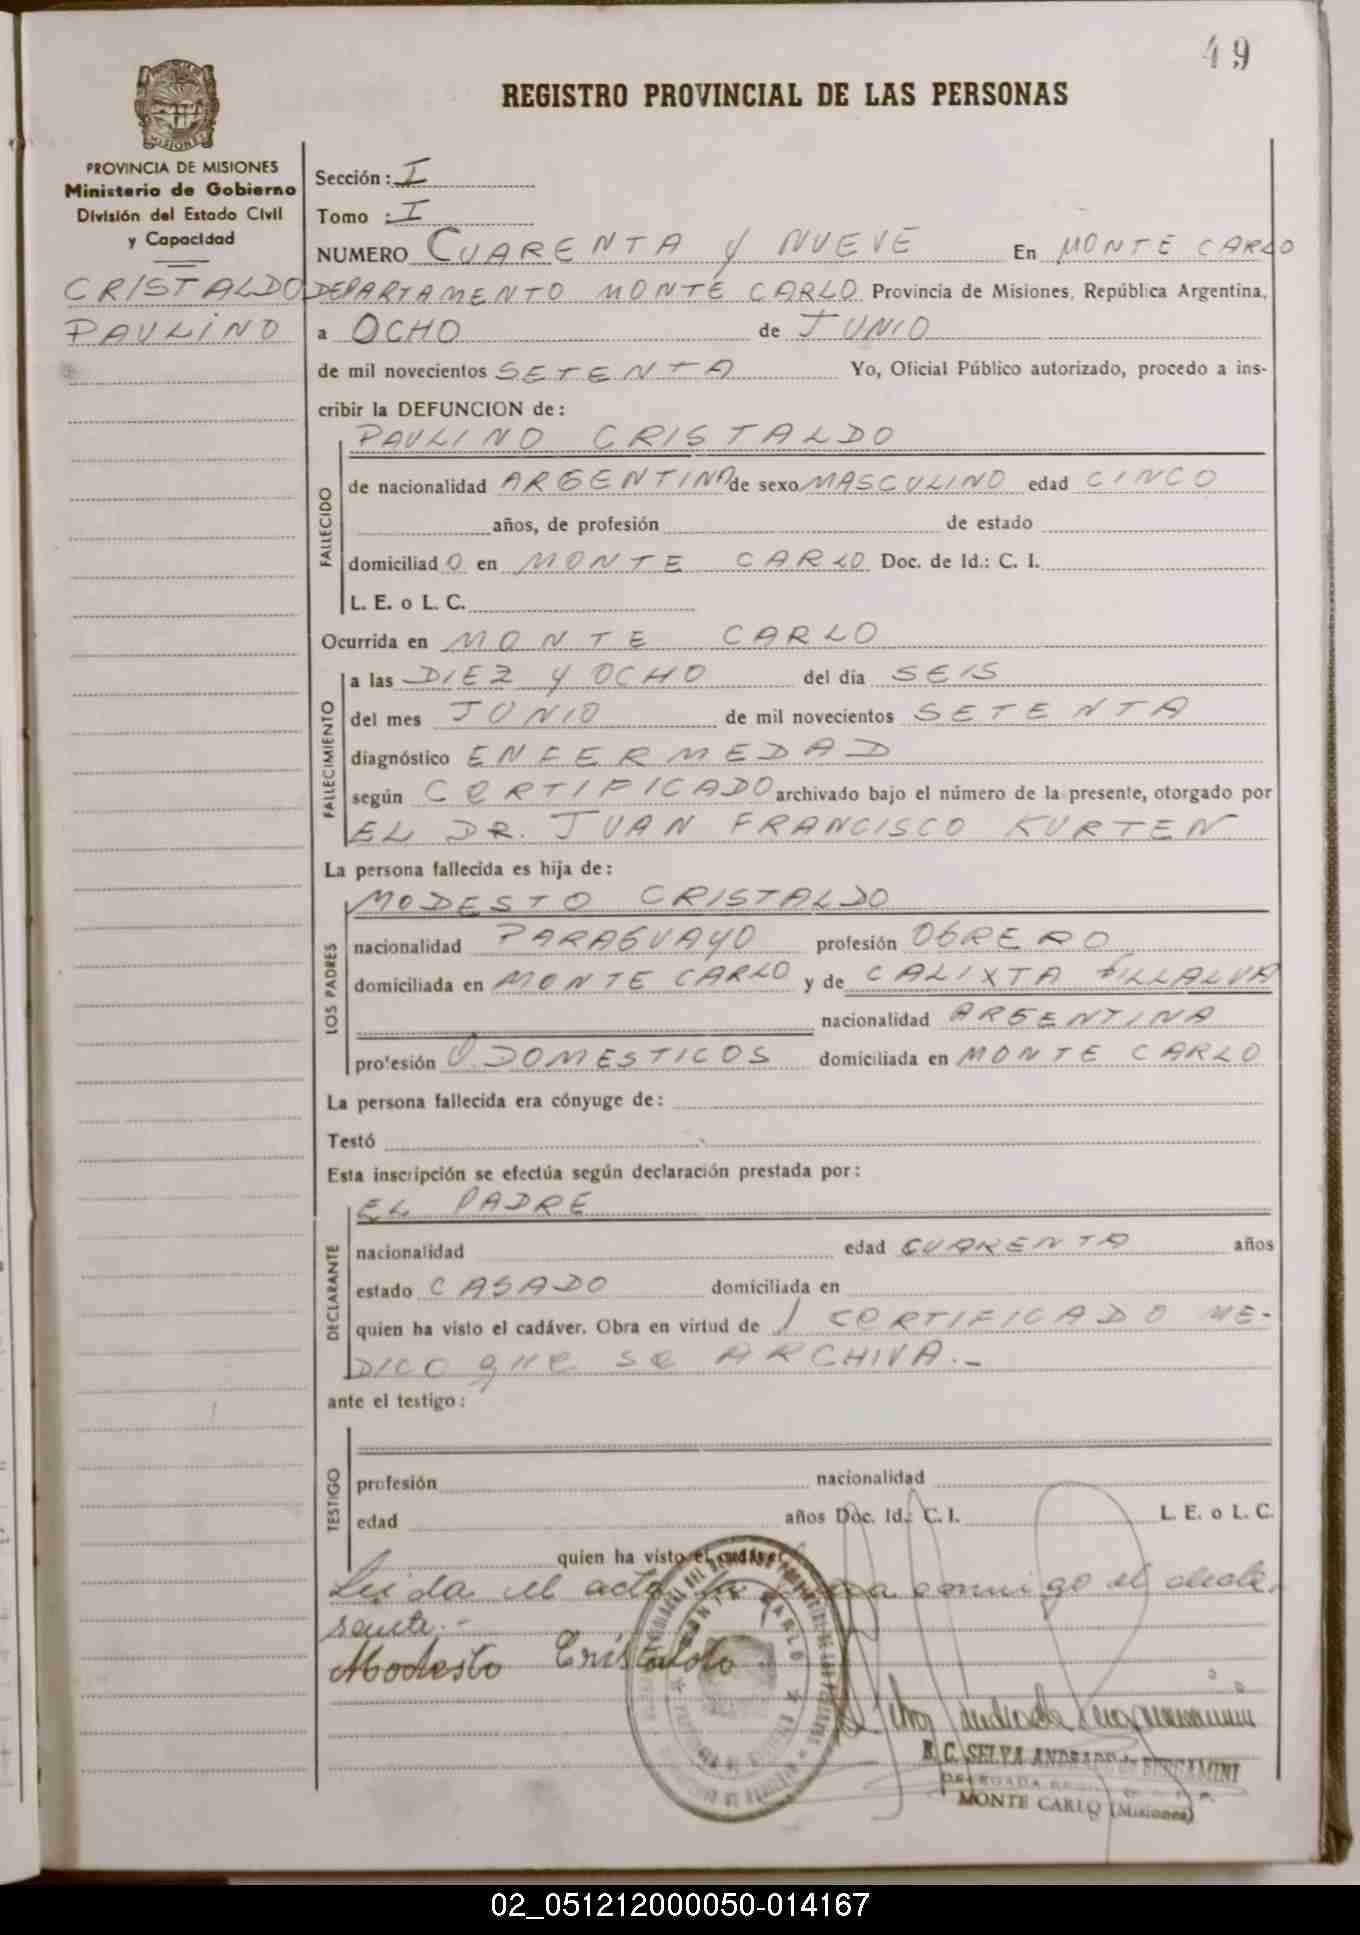 49
REGISTRO PROVINCIAL DE LAS PERSONAS
PROVINCIA DE MISIONES
Ministerio de Gobierno
División del Estado Civil
y Capacidad
CRISTALDO
PAULINO
Sección: I
Tomo : I
NUMERO CUARENTA Y NUEVE En MONTE CARLO
DEPARTAMENTO MONTE CARLO Provincia de Misiones, República Argentina,
a OCHO de JUNIO
de mil novecientos SETENTA Yo, Oficial Público autorizado, procedo a ins-
cribir la DEFUNCION de:
PAULINO CRISTALDO
FALLECIDO
de nacionalidad ARGENTINA de sexo MASCULINO edad CINCO
años, de profesión de estado
domiciliado en MONTE CARLO Doc. de Id.: C. I.
L. E. o L. C.
Ocurrida en MONTE CARLO
FALLECIMIENTO
a las DIEZ Y OCHO del día SEIS
del mes JUNIO de mil novecientos SETENTA
diagnóstico ENFERMEDAD
según CERTIFICADO archivado bajo el número de la presente, otorgado por
EL DR. JUAN FRANCISCO KURTEN
La persona fallecida es hija de:
MODESTO CRISTALDO
LOS PADRES
nacionalidad PARAGUAYO profesión OBRERO
domiciliada en MONTE CARLO y de CALIXTA VILLALVA
nacionalidad ARGENTINA
profesión Q. DOMESTICOS domiciliada en MONTE CARLO
La persona fallecida era cónyuge de:
Testó
Esta inscripción se efectúa según declaración prestada por:
EL PADRE
DECLARANTE
nacionalidad edad CUARENTA años
estado CASADO domiciliada en
quien ha visto el cadáver. Obra en virtud de 1 CERTIFICADO ME-
DICO que se ARCHIVA.-
ante el testigo:
TESTIGO
profesión nacionalidad
edad años Doc. Id. C. I. L. E. o L. C.
quien ha visto el cadáver
Leida el acta la firma conmigo el decla
rante.-
Modesto Cristaldo
MONTE CARLO
R. C. SELVA ANDRADE de BERGAMINI
DELEGADA
MONTE CARLO (Misiones)
02_051212000050-014167